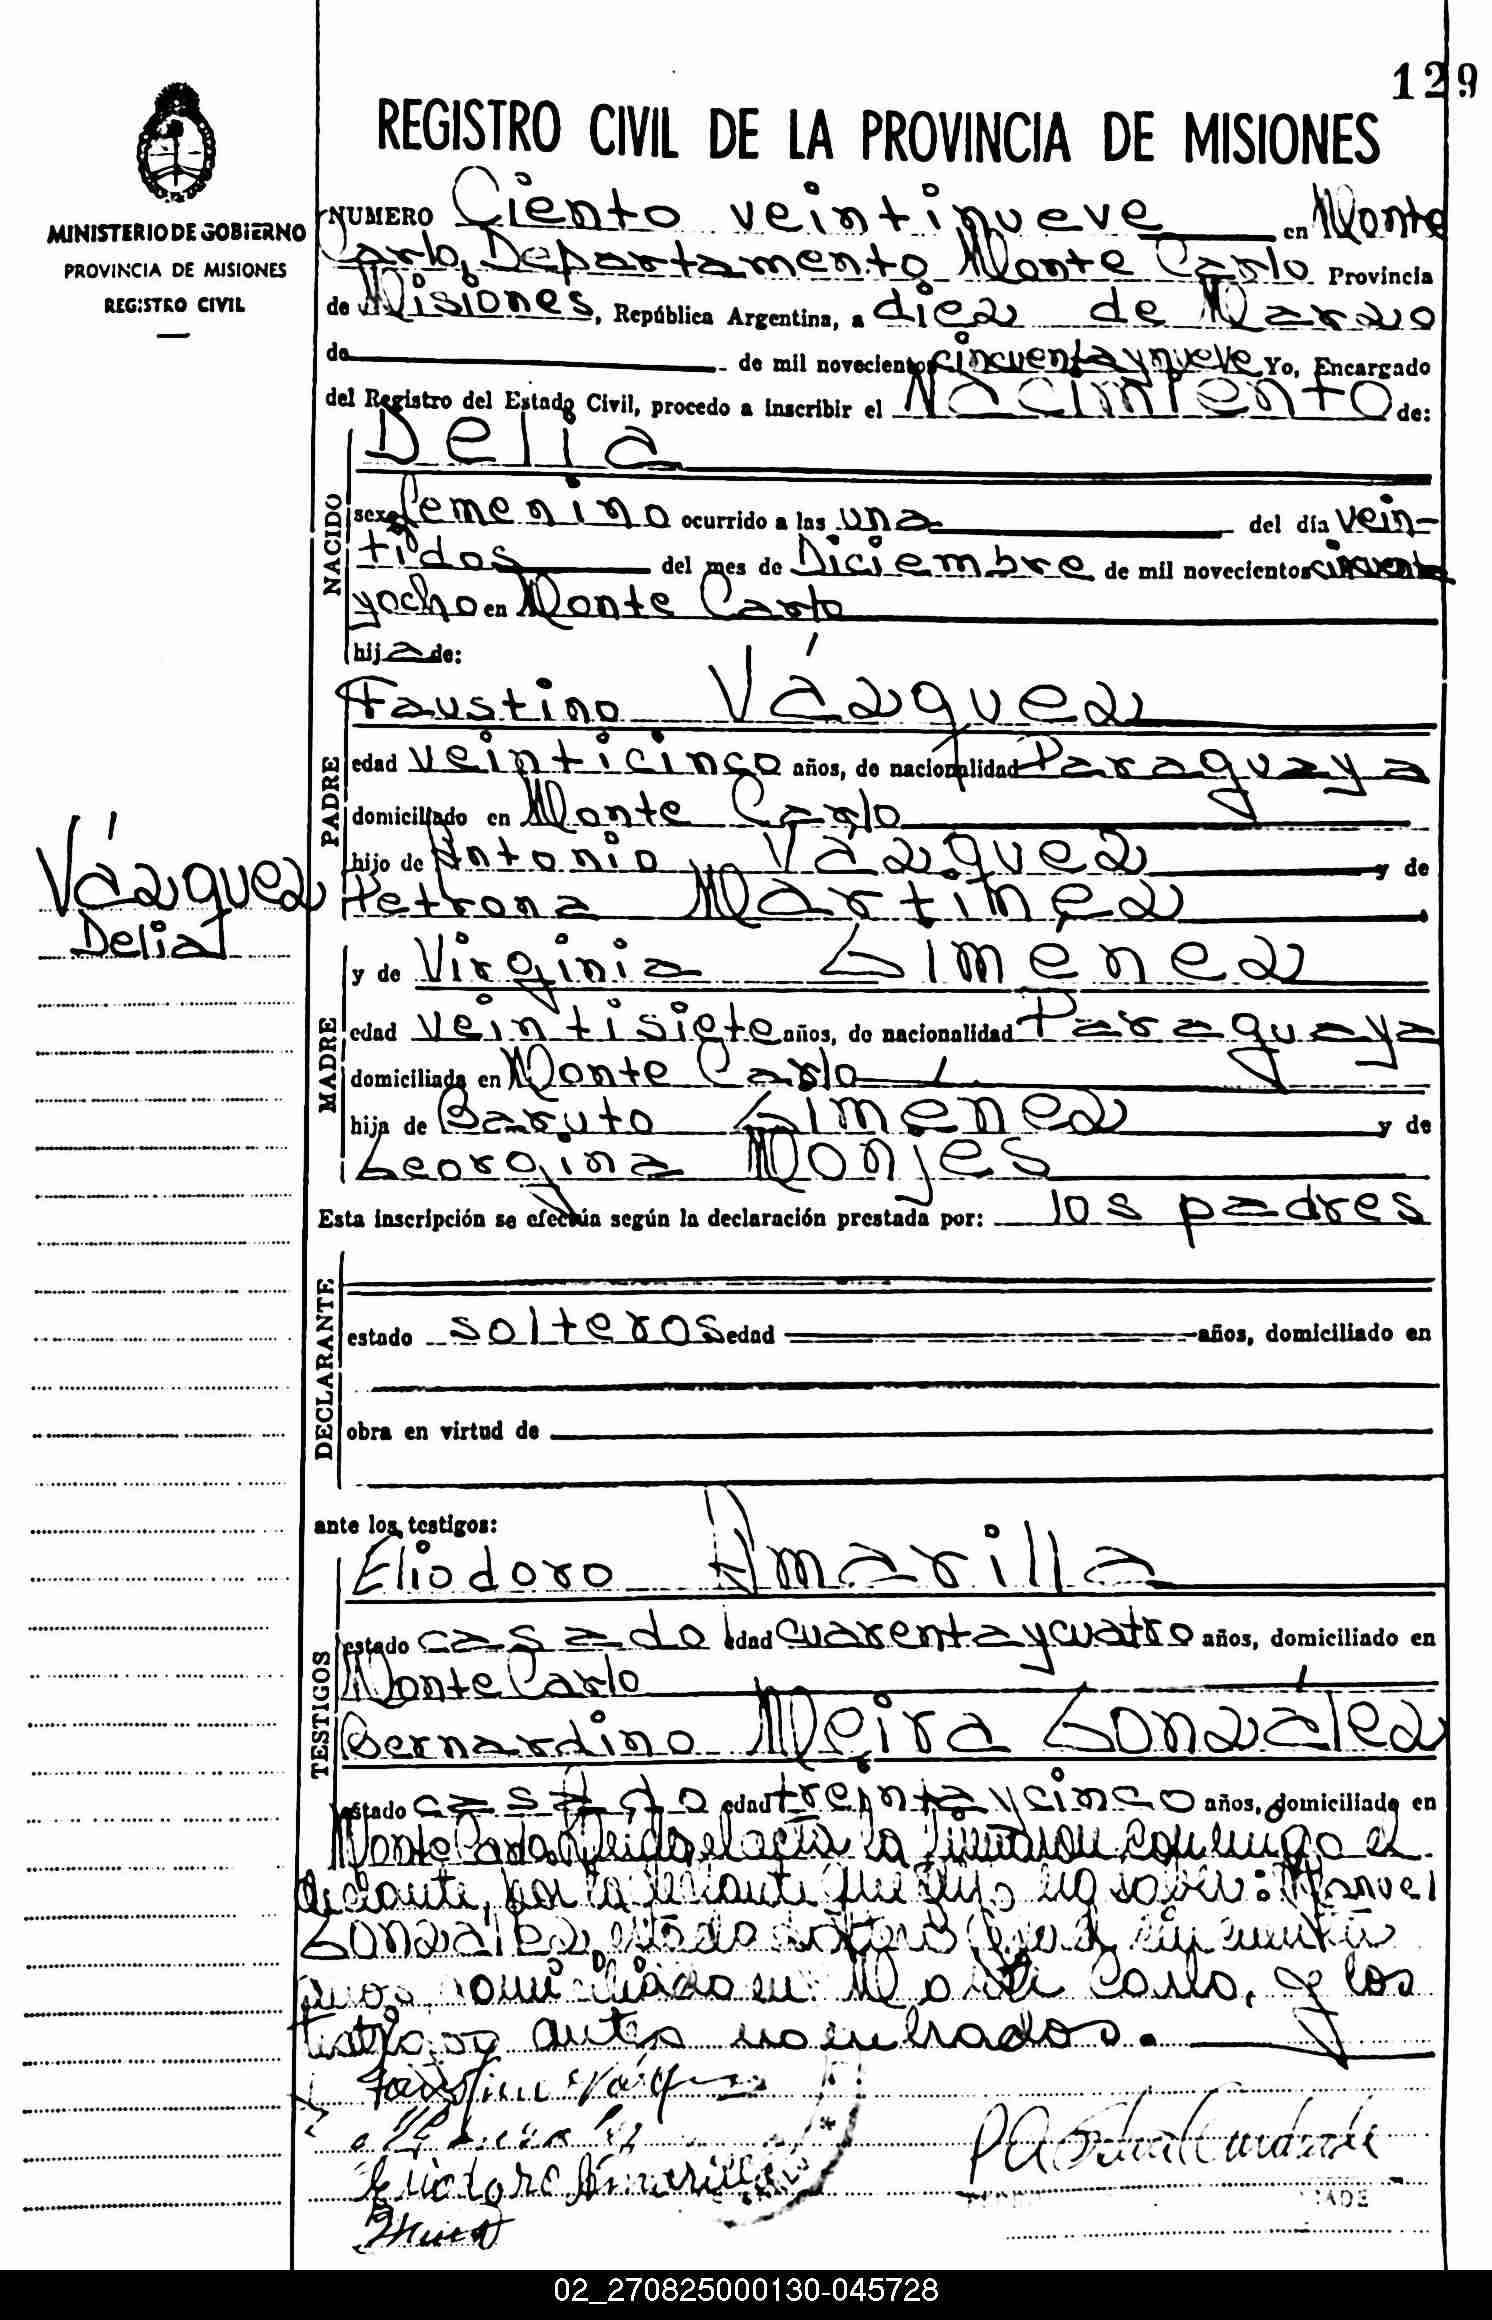 129
REGISTRO CIVIL DE LA PROVINCIA DE MISIONES
MINISTERIO DE GOBIERNO
PROVINCIA DE MISIONES
REGISTRO CIVIL
NUMERO Ciento veintinueve en Monte
Carlo, Departamento Monte Carlo Provincia
de Misiones, República Argentina, a diez de Marzo
de de mil novecientos cincuenta y nueve Yo, Encargado
del Registro del Estado Civil, procedo a inscribir el Nacimiento de:
NACIDO
Delia
sexo femenino ocurrido a las una del día vein-
tidos del mes de Diciembre de mil novecientos cincuenta
y ocho en Monte Carlo
hija de:
PADRE
Faustino Vázquez
edad veinticinco años, de nacionalidad Paraguaya
domiciliado en Monte Carlo
hijo de Antonio Vázquez y de
Petrona Martinez
Vázquez
Delia
MADRE
y de Virginia Gimenez
edad veintisiete años, de nacionalidad Paraguaya
domiciliada en Monte Carlo
hija de Baruto Gimenez y de
Georgina Monjes
Esta inscripción se efectúa según la declaración prestada por: los padres
DECLARANTE
estado solteros edad años, domiciliado en
obra en virtud de
ante los testigos:
TESTIGOS
Eliodoro Amarilla
estado casado edad cuarenta y cuatro años, domiciliado en
Monte Carlo
Bernardino Meira González
estado casado edad treinta y cinco años, domiciliado en
Monte Carlo. Leida el acta la firmaron conmigo el
declarante, por la declarante que dijo no saber: Manuel
González, estado soltero edad cincuenta
años domiciliado en Monte Carlo, y los
testigos antes nombrados.
Faustino Vázquez
Eliodoro Amarilla
02_270825000130-045728